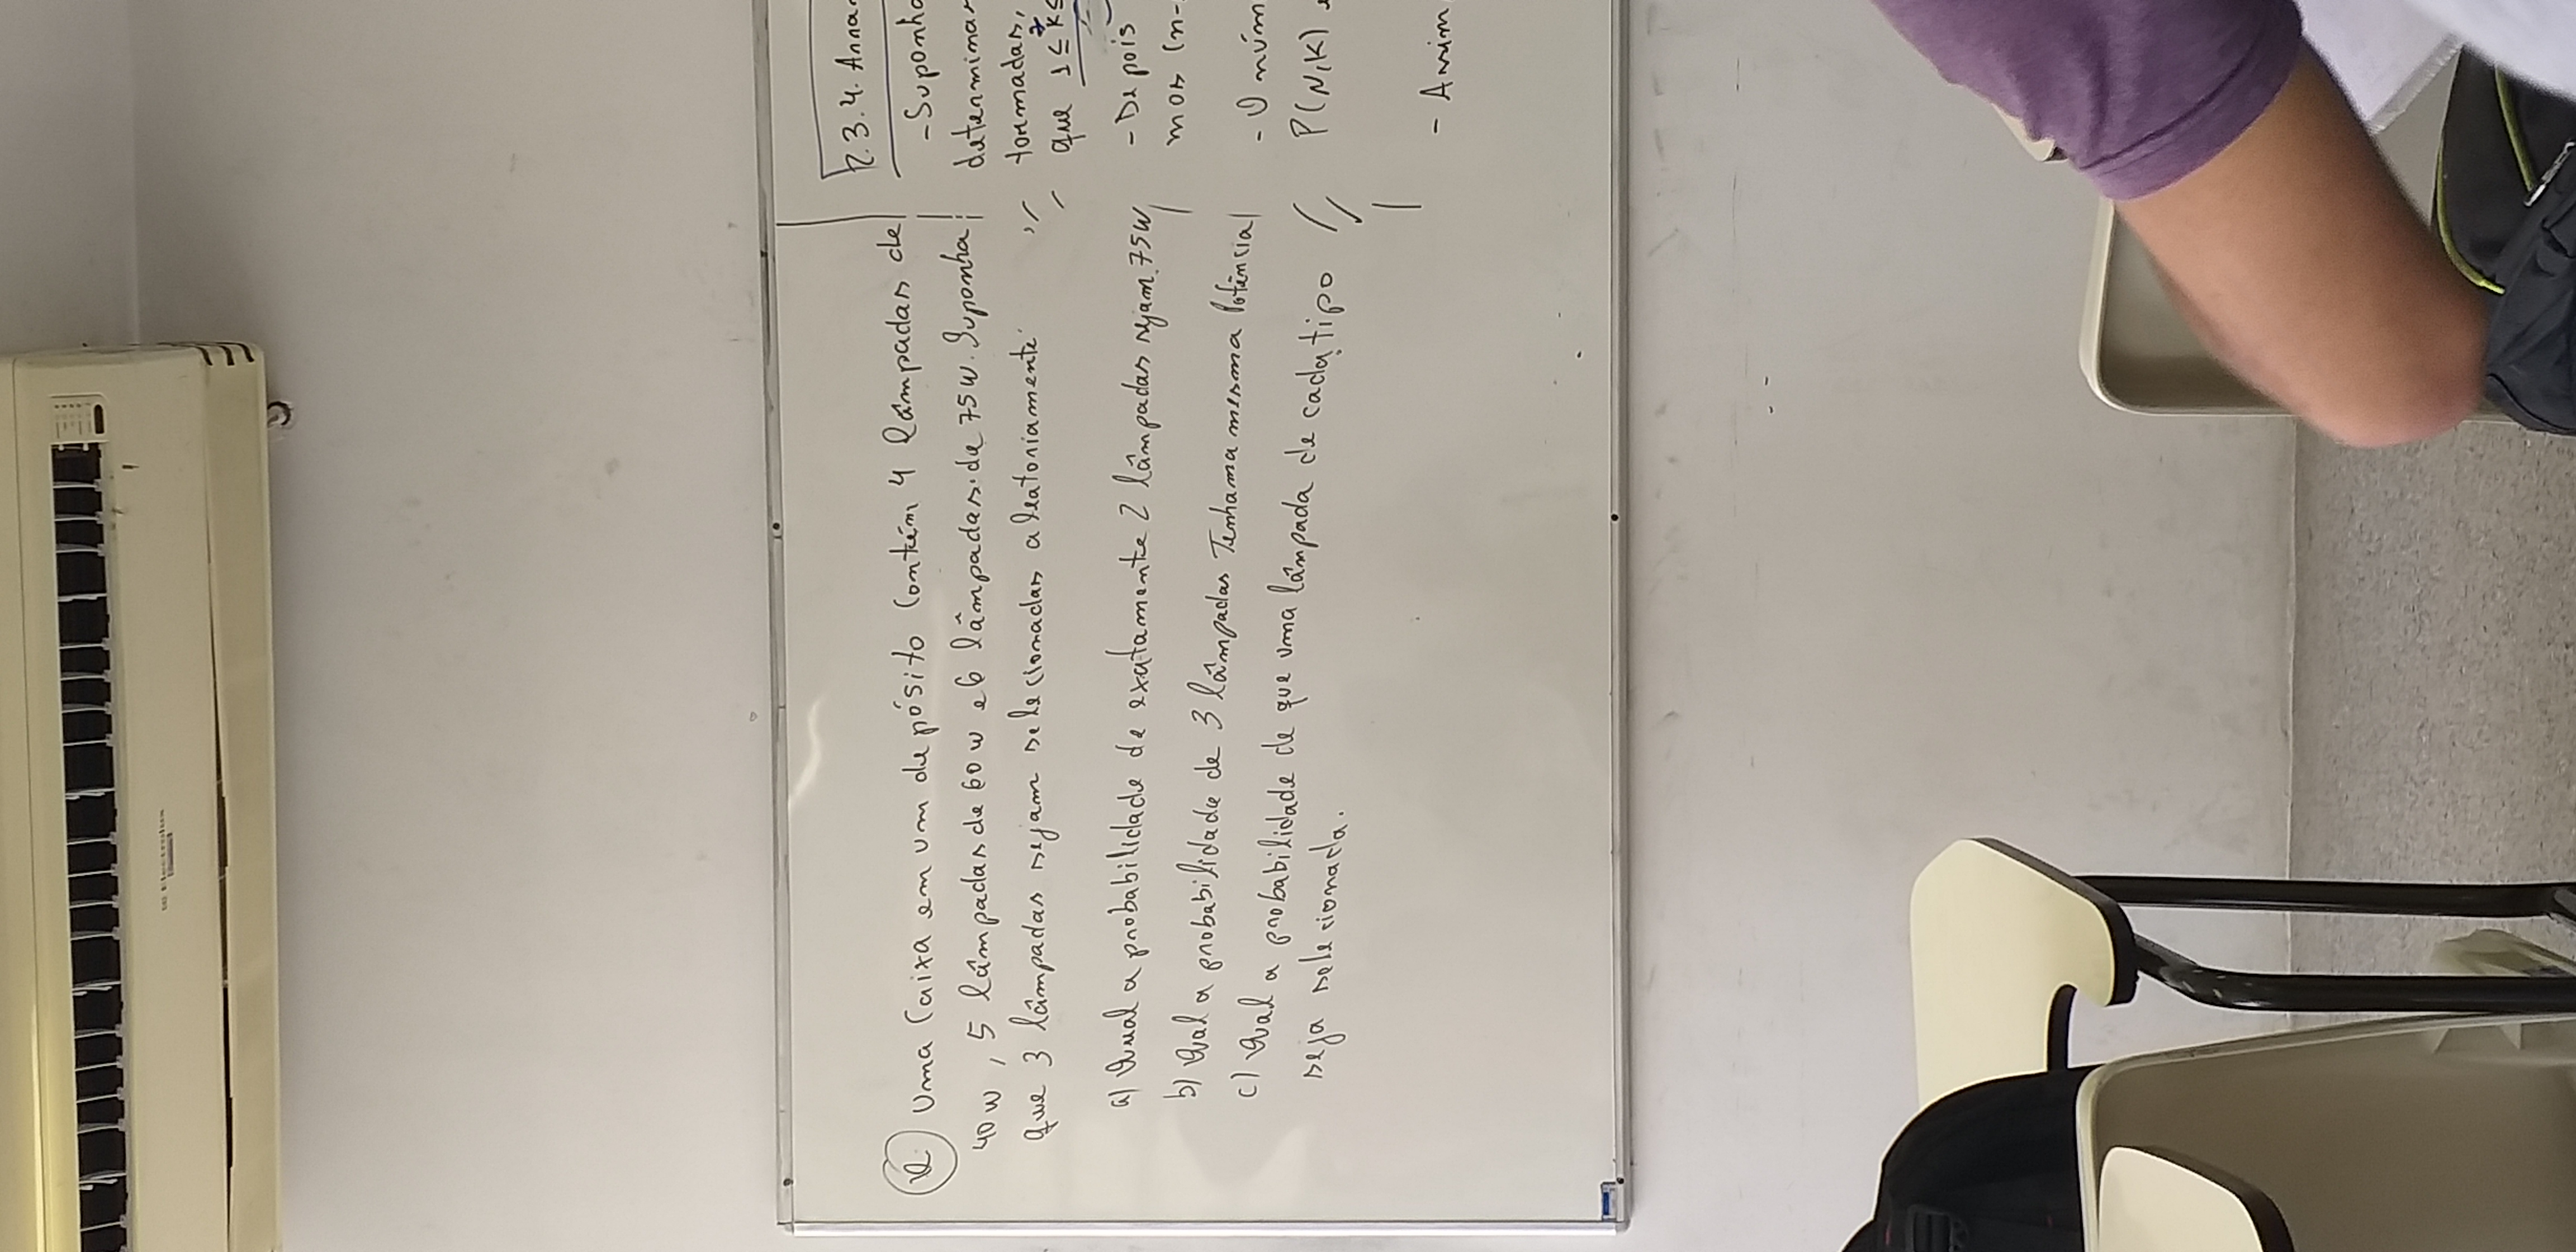 Electrolux
Uma Caixa em um depósito Contém 4 lâmpadas de
40w, 5 lâmpadas de 60w e 6 lâmpadas de 75w. Suponha
que 3 lâmpadas sejam selecionadas aleatoriamente
a) Qual a probabilidade de exatamente 2 lâmpadas sejam 75w
b) Qual a probabilidade de 3 lâmpadas Tenham a mesma Potência
c) Qual a probabilidade de que uma lâmpada de cada tipo
seja selecionada.
2.3.4. Arra
- Suponha
determinar
formadas,
que 1 ≤ k ≤
- Depois
mos (n-
- O núm
P(N,K)
- Assim